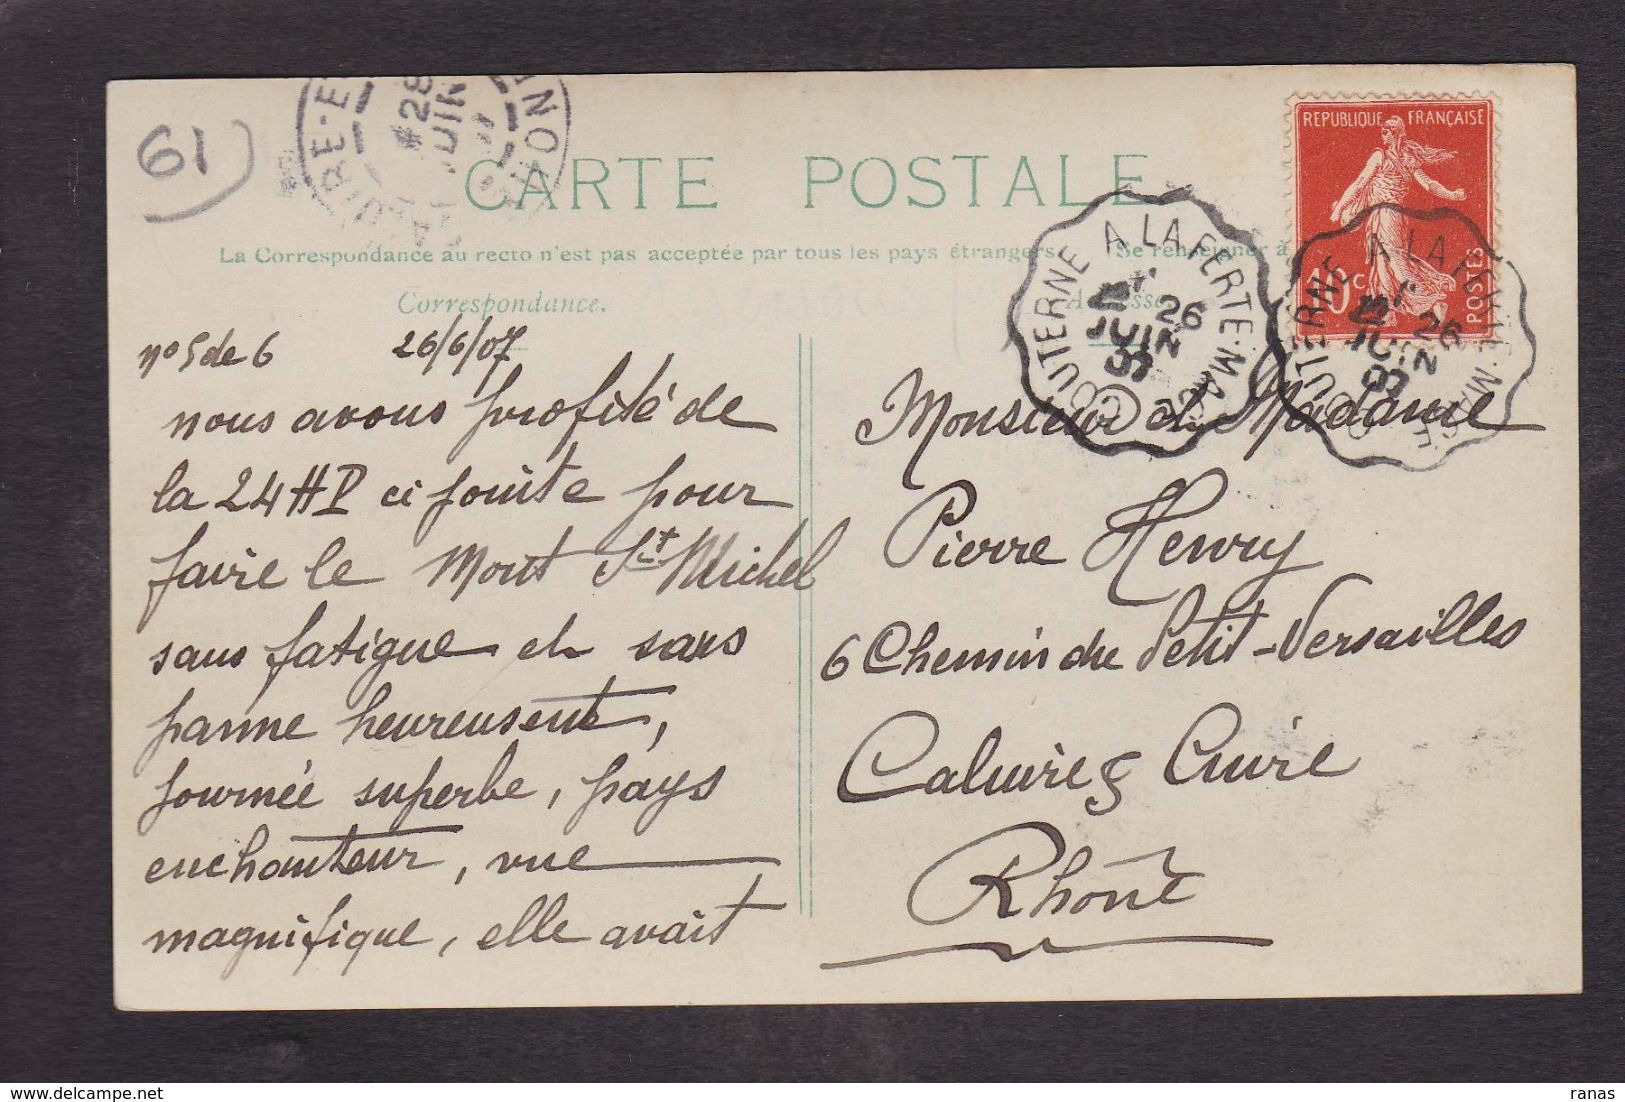 61
CARTE POSTALE
La Correspondance au recto n'est pas acceptée par tous les pays étrangers. Se renseigner à
Correspondance.
RÉPUBLIQUE FRANÇAISE
10 c
POSTES
COUTERNE A LA FERTE-MACE
26
JUIN
07
COUTERNE A LA FERTE-MACE
26
JUIN
07
28
JUIN
no 5 de 6 26/6/07
nous avons profité de
la 24 HP ci jointe pour
faire le Mont St Michel
sans fatigue et sans
panne heureusent,
journée superbe, pays
enchanteur, vue
magnifique, elle avait
Monsieur et Madame
Pierre Henry
6 Chemin du Petit-Versailles
Caluire & Cuire
Rhône
ranas